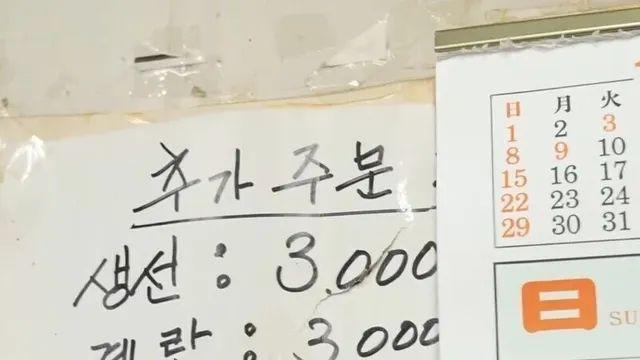 추가 주문
생선 : 3.000
계란 : 3.000
日 月 火
1 2 3
8 9 10
15 16 17
22 23 24
29 30 31
日
SU